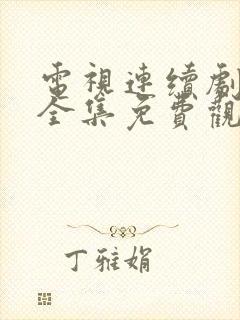 電視連續劇
全集免費觀
丁雅娟